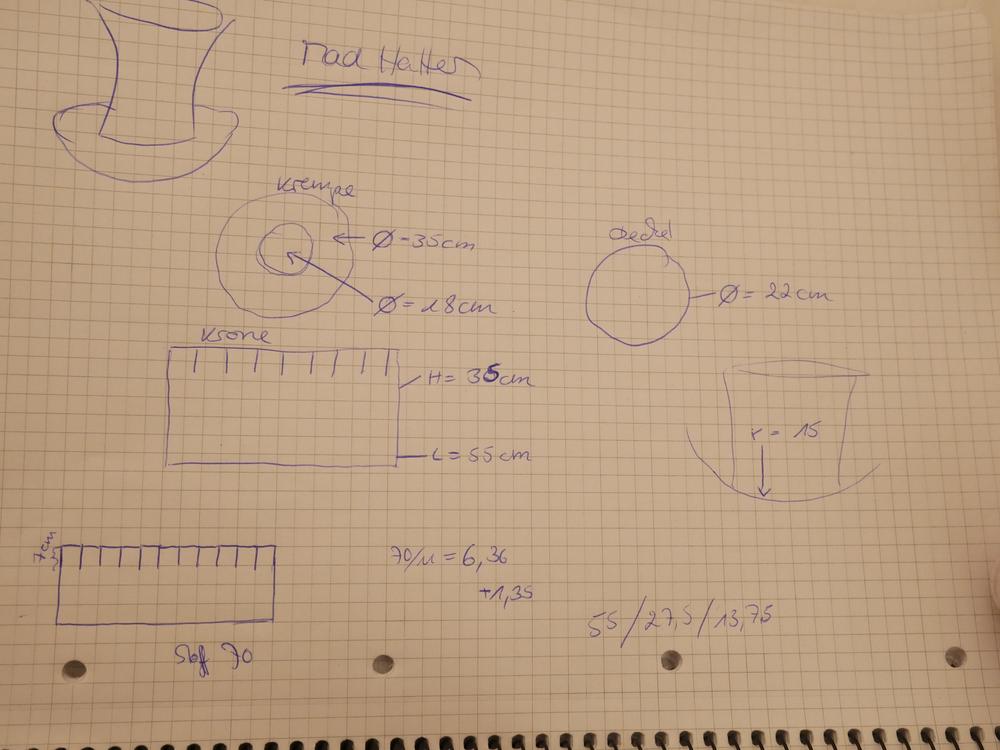 Mad Hatter
Krempe
Ø = 35cm
Ø = 18cm
Deckel
Ø = 22cm
Krone
H = 35cm
L = 55cm
r = 15
7cm
70/11 = 6,36
+1,35
55/27,5/13,75
70